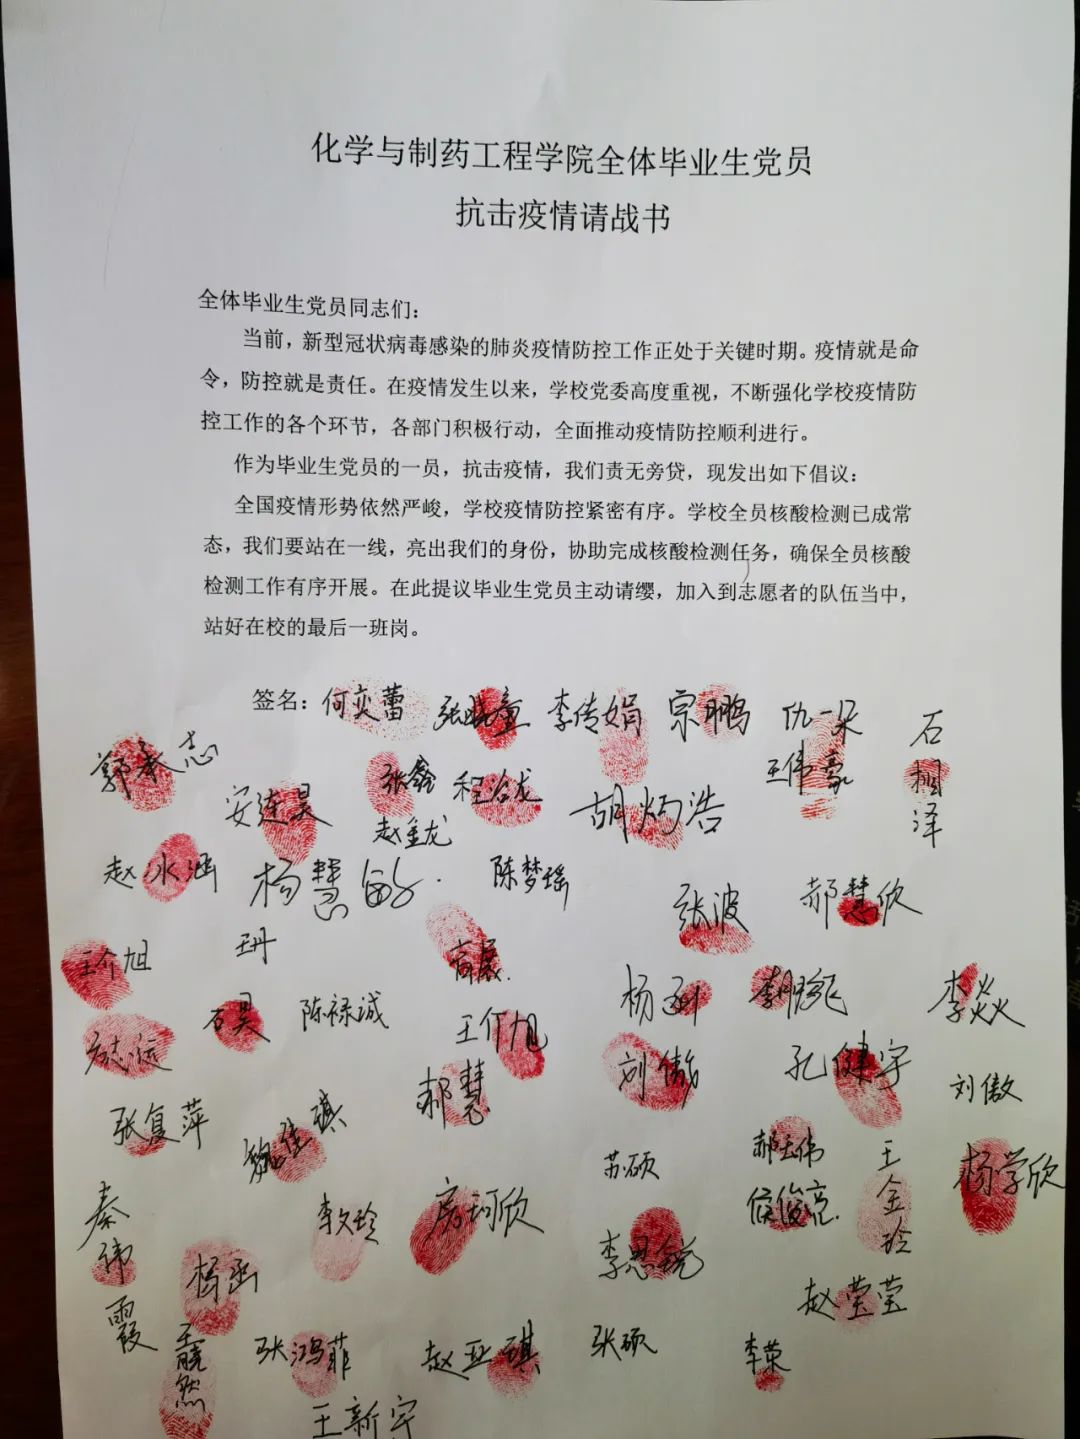 化学与制药工程学院全体毕业生党员
抗击疫情请战书
全体毕业生党员同志们：
当前，新型冠状病毒感染的肺炎疫情防控工作正处于关键时期。疫情就是命
令，防控就是责任。在疫情发生以来，学校党委高度重视，不断强化学校疫情防
控工作的各个环节，各部门积极行动，全面推动疫情防控顺利进行。
作为毕业生党员的一员，抗击疫情，我们责无旁贷，现发出如下倡议：
全国疫情形势依然严峻，学校疫情防控紧密有序。学校全员核酸检测已成常
态，我们要站在一线，亮出我们的身份，协助完成核酸检测任务，确保全员核酸
检测工作有序开展。在此提议毕业生党员主动请缨，加入到志愿者的队伍当中，
站好在校的最后一班岗。
签名：何奕蕾 李传娟 宗鹏 仇一朵
石桐泽
郭承志 张鑫 王伟豪
安连昊 赵金龙 胡炳浩
赵冰涵 杨慧敏 陈梦瑶
张波 郝慧欣
王介旭 高展
石昊 陈禄诚 李焱
方志远 刘傲 孔健宇
郝慧 刘傲
张复萍 苏硕 郝天伟 王金玲 杨学欣
秦祎霞 李文玲 房珂欣 侯俊亮
杨函 李思锐
赵莹莹
王晓然 张鸿菲 赵亚琪 张硕 李荣
王新宇